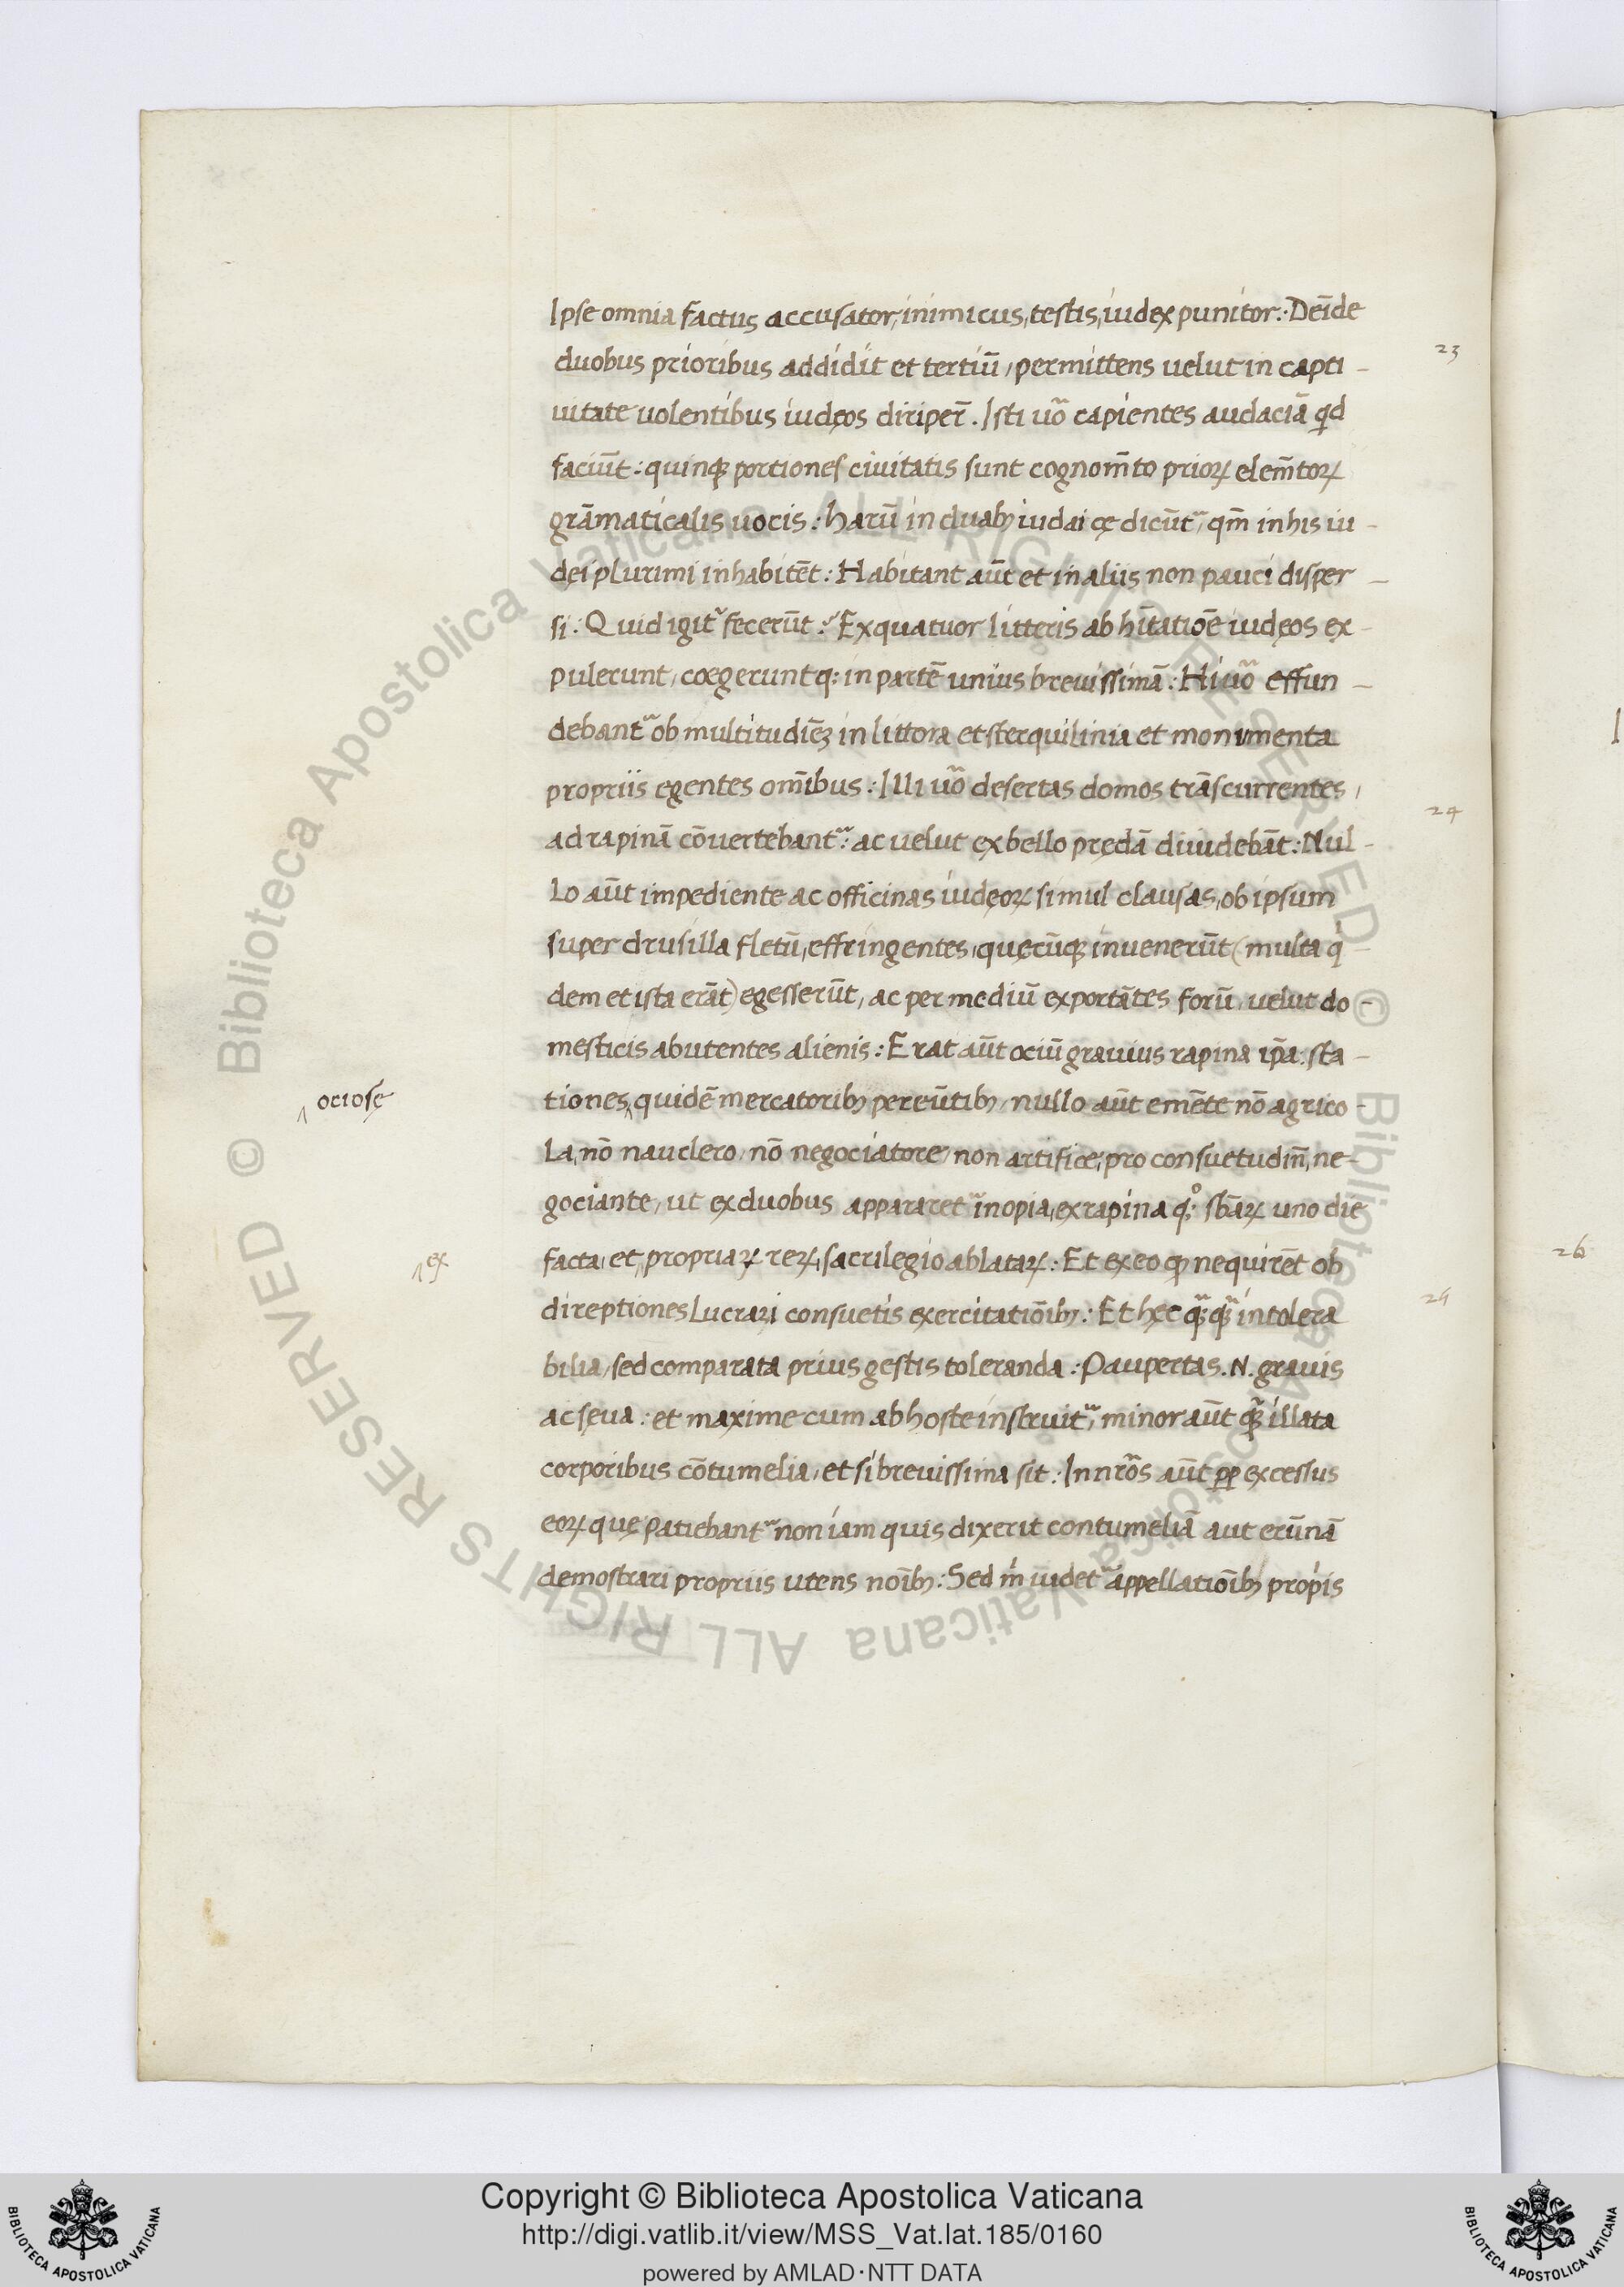 Ipse omnia factus accusator, inimicus, testis, iudex punitor:· Deīde
duobus prioribus addidit et tertiū, permittens uelut in capti-
uitate uolentibus iudęos diriper̄. Isti uo᷑ capientes audaciā qd
faciūt: quinqꝫ portiones ciuitatis sunt cognom̄to prioꝝ elem̄toꝝ
grāmaticalis uocis: harū in duabꝫ iudaicę dicūt᷑, qm̄ in his iu-
dęi plurimi inhabitēt: Habitant aūt et in aliis non pauci disper-
si: Quid igit᷑ fecerūt: Ex quatuor litteris ab hītatiōe iudęos ex-
pulerunt, coegerunt q: in partē unius breuissimā: Hi uo᷑ effun-
debant᷑ ob multitudiēꝫ in littora et sterquilinia et monimenta
propriis egentes om̄ibus: Illi uo᷑ desertas domos trāscurrentes,
ad rapinā cōuertebant᷑: ac uelut ex bello prędā diuidebāt: Nul-
lo aūt impediente ac officinas iudęoꝝ simul clausas, ob ipsum
super drusilla fletū, effringentes, quęcūqꝫ inuenerūt (multa q
dem et ista erāt) egesserūt, ac per mediū exportātes forū, uelut do-
mesticis abutentes alienis: Erat aūt ociū grauius rapina ip̄a: sta-
^ ociosę
tiones^ quidē mercatoribꝫ pereūtibꝫ, nullo aūt emēte nō agrico-
la, nō nauclero, nō negociatore, non artifice, pro consuetudin̄, ne-
gociante, ut ex duobus appararet᷑ inopia, ex rapina qͦ; sb̄aꝝ uno die
^ ex
facta, et^ propriaꝝ reꝝ, sacrilegio ablataꝝ: Et ex eo ꝙ nequirēt ob
direptiones lucrari consuetis exercitatiōibꝫ: Et hęc qꝫqꝫ intolera
bilia, sed comparata prius gestis toleranda: Paupertas .N. grauis
ac sęua: et maxime cum ab hoste instruit᷑, minor aūt qꝫ illata
corporibus cōtumelia, et si breuissima sit: In nr̄os aūt ꝓꝑ excessus
eoꝝ quę patiebant᷑ non iam quis dixerit contumeliā aut erūnā
demostrari propriis utens noībꝫ: Sed m uidet᷑ appellatiōibꝫ propis
23
24
25
26
Copyright © Biblioteca Apostolica Vaticana
http://digi.vatlib.it/view/MSS_Vat.lat.185/0160
powered by AMLAD·NTT DATA
BIBLIOTECA APOSTOLICA VATICANA
BIBLIOTECA APOSTOLICA VATICANA
© Biblioteca Apostolica Vaticana ALL RIGHTS RESERVED © Biblioteca Apostolica Vaticana ALL RIGHTS RESERVED